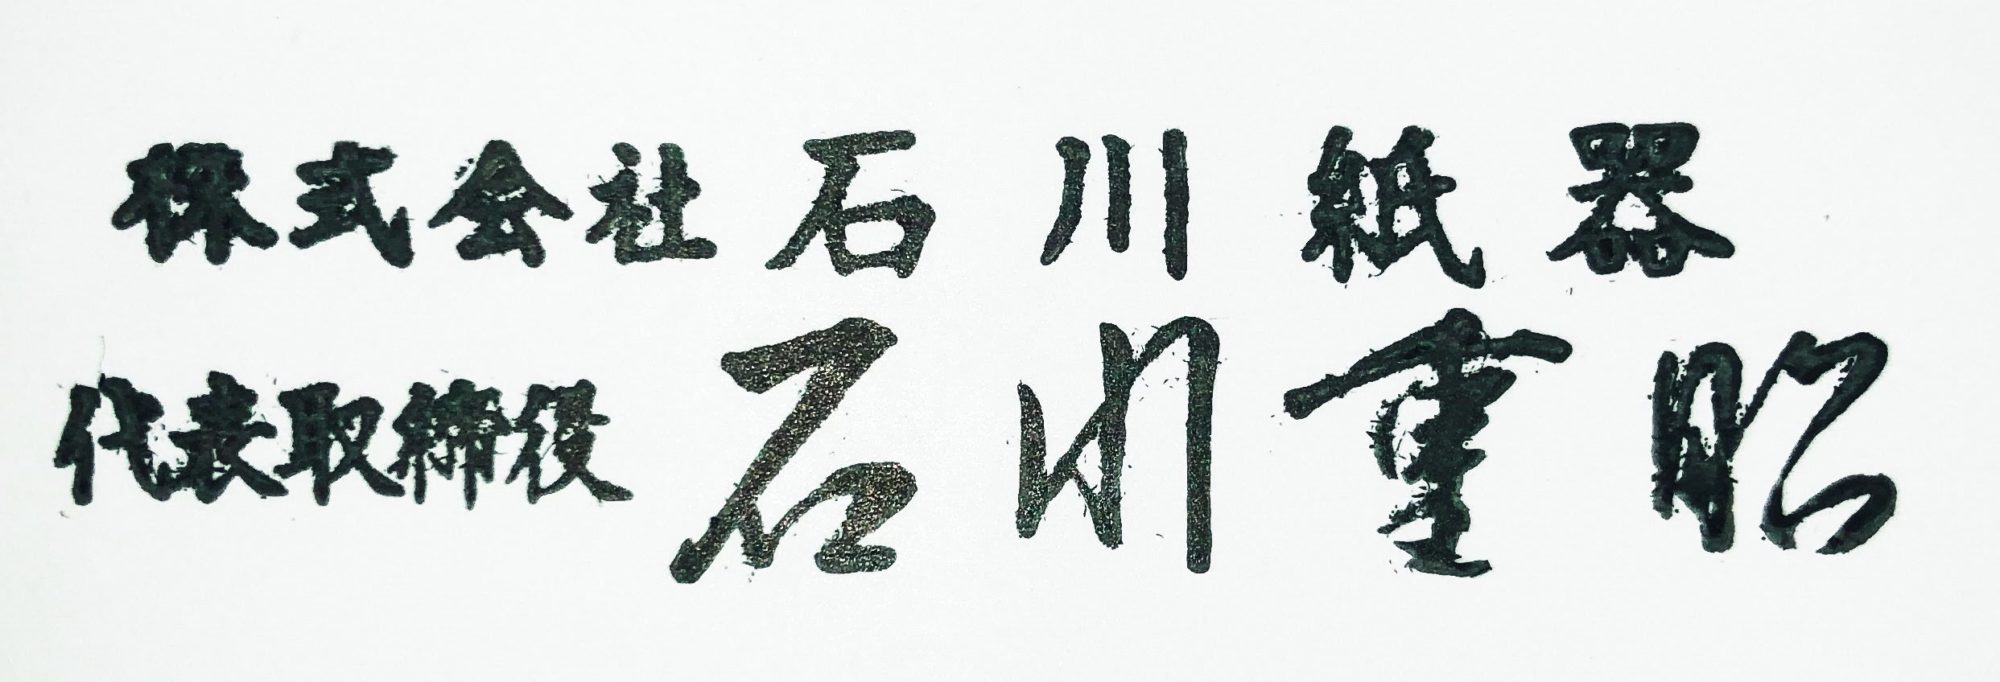 株式会社石川紙器
代表取締役 石川重昭